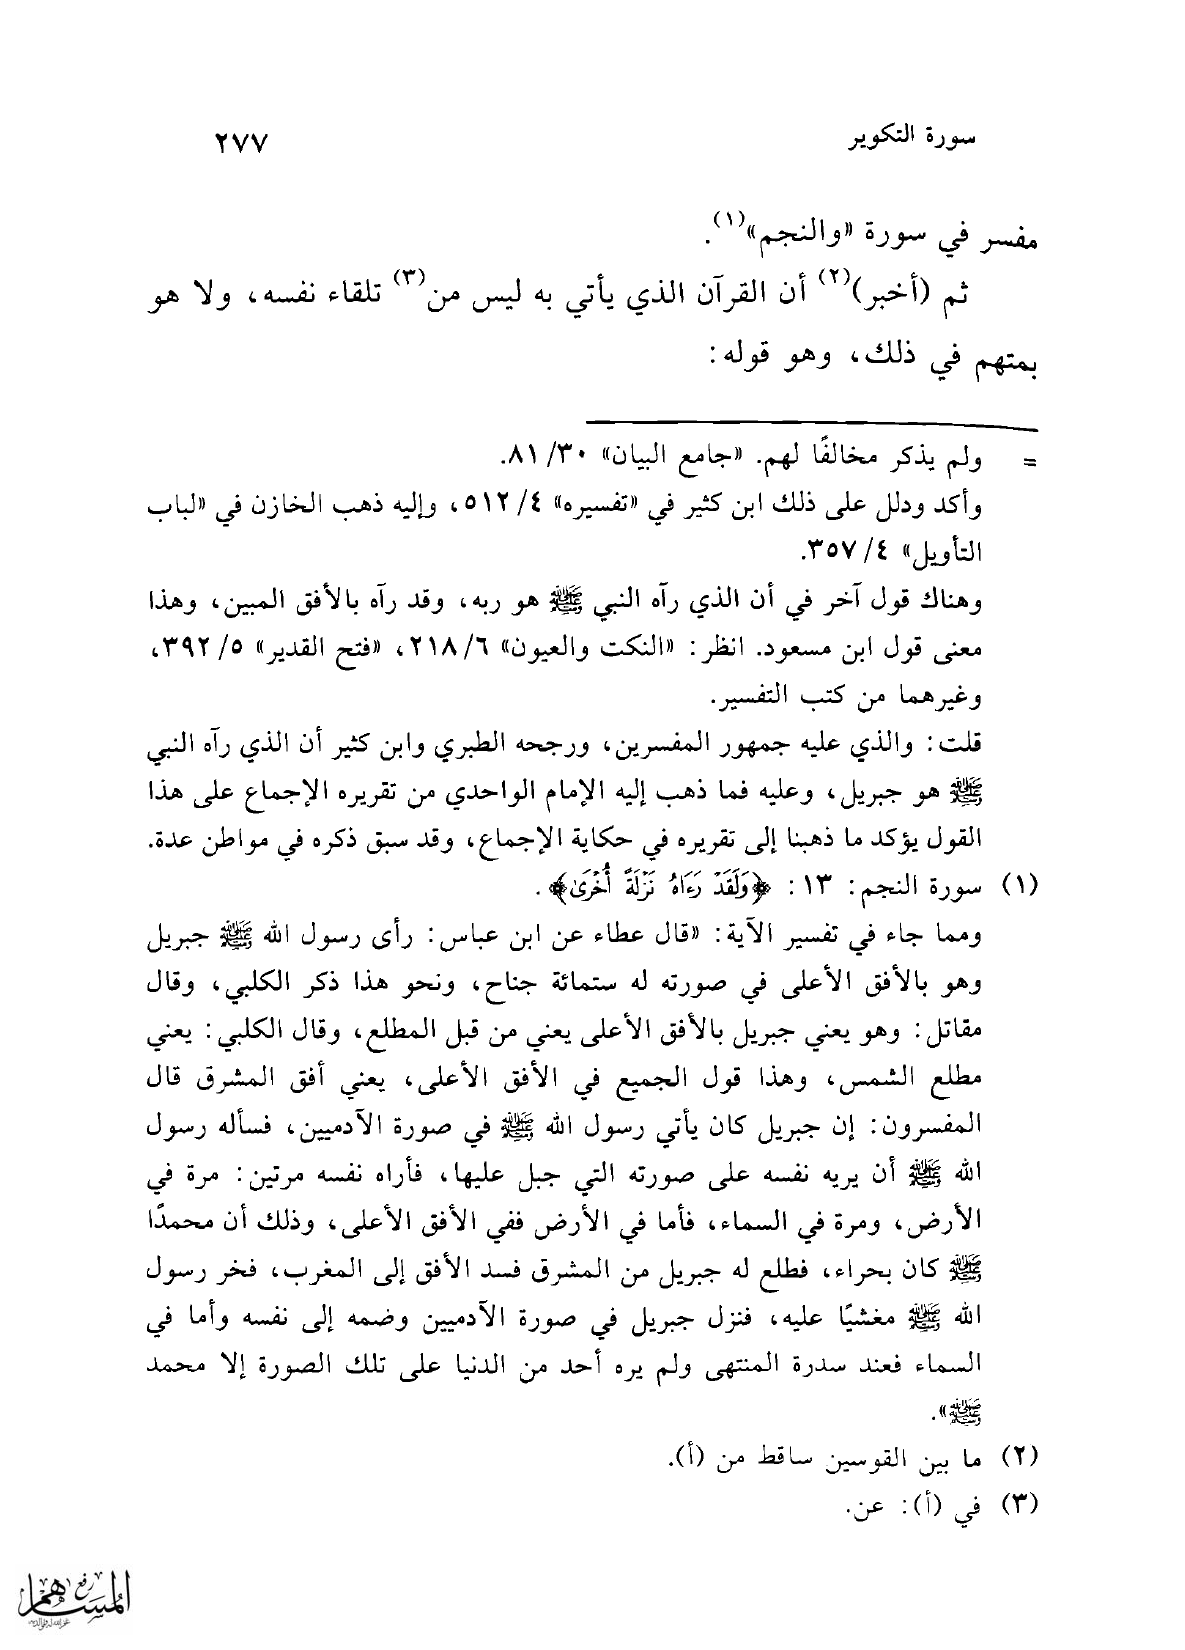 سورة التكوير
٢٧٧
مفسر في سورة «والنجم»(١).
ثم (أخبر)(٢) أن القرآن الذي يأتي به ليس من(٣) تلقاء نفسه، ولا هو
بمتهم في ذلك، وهو قوله:
= ولم يذكر مخالفًا لهم. «جامع البيان» ٣٠/ ٨١.
وأكد ودلل على ذلك ابن كثير في «تفسيره» ٤/ ٥١٢، وإليه ذهب الخازن في «لباب
التأويل» ٤/ ٣٥٧.
وهناك قول آخر في أن الذي رآه النبي ﷺ هو ربه، وقد رآه بالأفق المبين، وهذا
معنى قول ابن مسعود. انظر: «النكت والعيون» ٦/ ٢١٨، «فتح القدير» ٥/ ٣٩٢،
وغيرهما من كتب التفسير.
قلت: والذي عليه جمهور المفسرين، ورجحه الطبري وابن كثير أن الذي رآه النبي
ﷺ هو جبريل، وعليه فما ذهب إليه الإمام الواحدي من تقريره الإجماع على هذا
القول يؤكد ما ذهبنا إلى تقريره في حكاية الإجماع، وقد سبق ذكره في مواطن عدة.
(١) سورة النجم: ١٣: ﴿وَلَقَدْ رَءَاهُ نَزْلَةً أُخْرَىٰ﴾.
ومما جاء في تفسير الآية: «قال عطاء عن ابن عباس: رأى رسول الله ﷺ جبريل
وهو بالأفق الأعلى في صورته له ستمائة جناح، ونحو هذا ذكر الكلبي، وقال
مقاتل: وهو يعني جبريل بالأفق الأعلى يعني من قبل المطلع، وقال الكلبي: يعني
مطلع الشمس، وهذا قول الجميع في الأفق الأعلى، يعني أفق المشرق قال
المفسرون: إن جبريل كان يأتي رسول الله ﷺ في صورة الآدميين، فسأله رسول
الله ﷺ أن يريه نفسه على صورته التي جبل عليها، فأراه نفسه مرتين: مرة في
الأرض، ومرة في السماء، فأما في الأرض ففي الأفق الأعلى، وذلك أن محمدًا
ﷺ كان بحراء، فطلع له جبريل من المشرق فسد الأفق إلى المغرب، فخر رسول
الله ﷺ مغشيًا عليه، فنزل جبريل في صورة الآدميين وضمه إلى نفسه وأما في
السماء فعند سدرة المنتهى ولم يره أحد من الدنيا على تلك الصورة إلا محمد
ﷺ».
(٢) ما بين القوسين ساقط من (أ).
(٣) في (أ): عن.